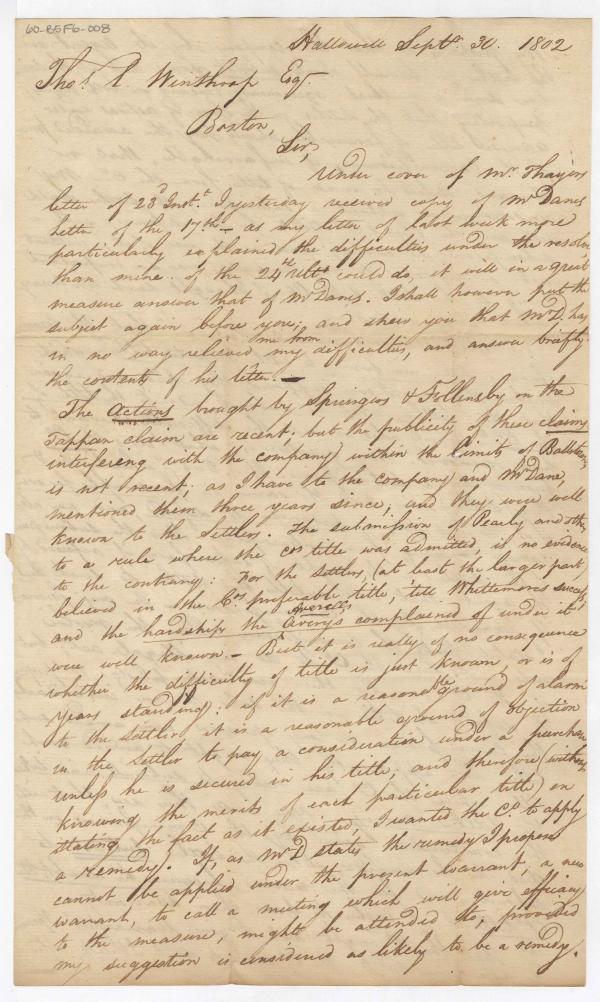 60-B5F6-008
Hallowell Septr. 30. 1802
Thos. L. Winthrop Esqr
Boston,
Sir,
Under cover of Mr. Thayers
letter of 23d Inst. I yesterday received copy of Mr Danes
letter of the 17th - as my letter of last week more
particularly explained the difficulties under the resolve
than mine of the 24th ulto. could do, it will in a great
measure answer that of Mr Danes. I shall however put the
subject again before you; and shew you that Mr D. has
in no way relieved me from my difficulties, and answer briefly
the contents of his letter. —
The Actions brought by Springers & Follensby on the
Tappan claim are recent; but the publicity of these claims
interfering with the company) within the limits of Ballstown
is not recent; as I have to the company and Mr Dane,
mentioned them three years since, and they were well
known to the Settlers. The submission of Pearly and
to a rule where the Cos title was admitted, is no evidence
to the contrary: For the settlers, (at least the larger part,)
believed in the Cos. preferable title, till Whittemores success,
and the hardships the Averys Averes complained of under it
were well known. — But it is really of no consequence
whether the difficulty of title is just known, or is of
years standing: if it is a reasonable ground of alarm
to the settler it is a reasonable ground of objection
in the settler to pay a consideration under a purchase
unless he is secured in his title; and therefore (without
knowing the merits of each particular title) on
stating the fact as it existed, I wanted the Co. to apply
a remedy. If, as Mr D states the remedy I propose
cannot be applied under the present warrant, a new
warrant, to call a meeting which will give efficacy
to the measure, might be attended to; provided
my suggestion is considered as likely to be a remedy.